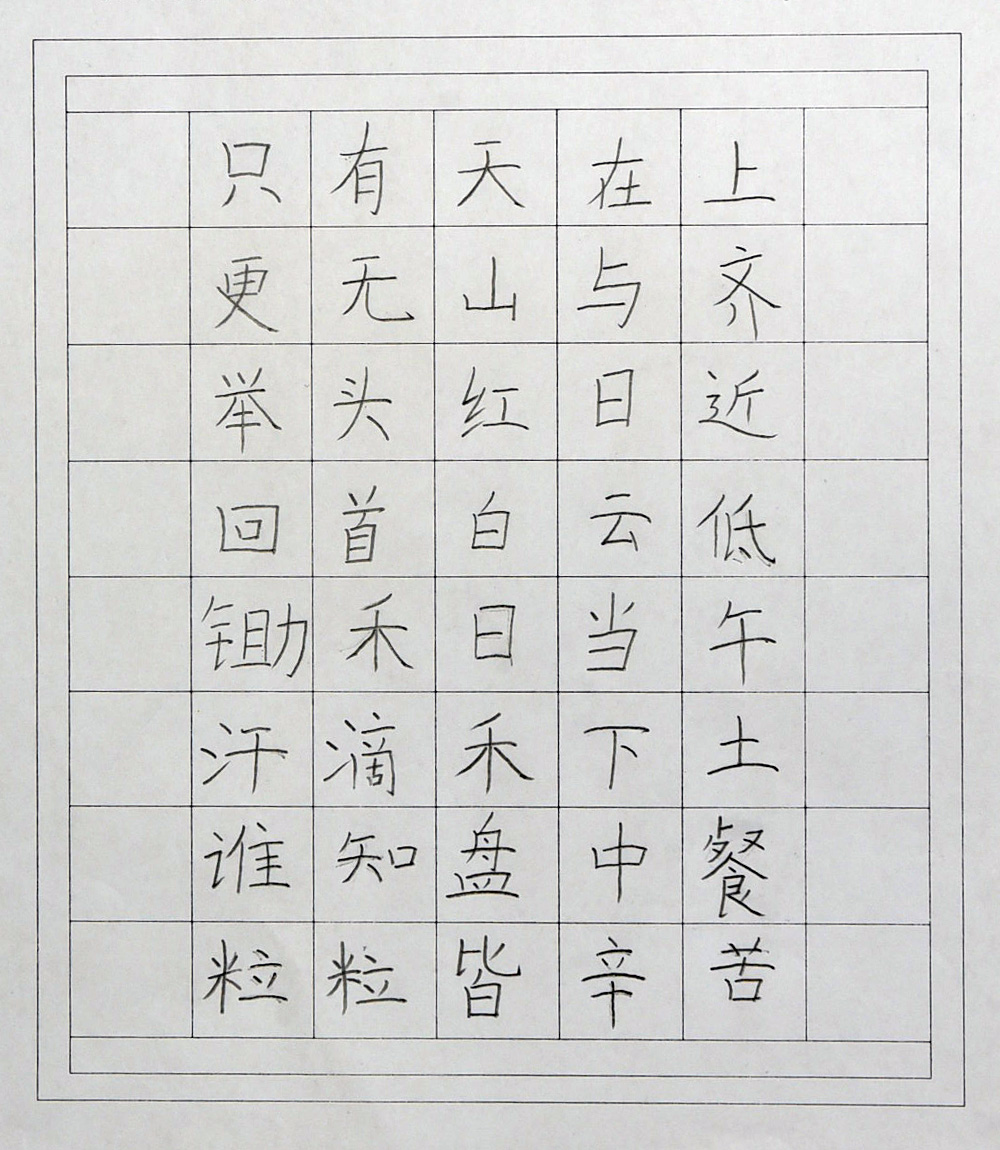 只有天在上
更无山与齐
举头红日近
回首白云低
锄禾日当午
汗滴禾下土
谁知盘中餐
粒粒皆辛苦